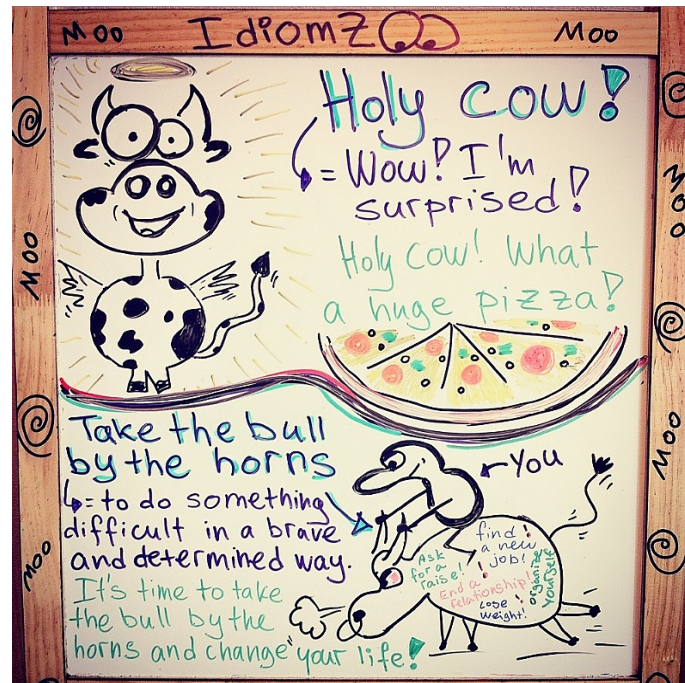 Moo IdiomZoo Moo
Holy cow!
= Wow! I'm
surprised!
Holy cow! What
a huge pizza!
Moo
Moo
Take the bull
by the horns
= to do something
difficult in a brave
and determined way.
It's time to take
the bull by the
horns and change your life!
You
Ask
for a
raise!
find
a new
job!
End a
relationship!
Lose
weight!
organize
yourself
Moo
Moo